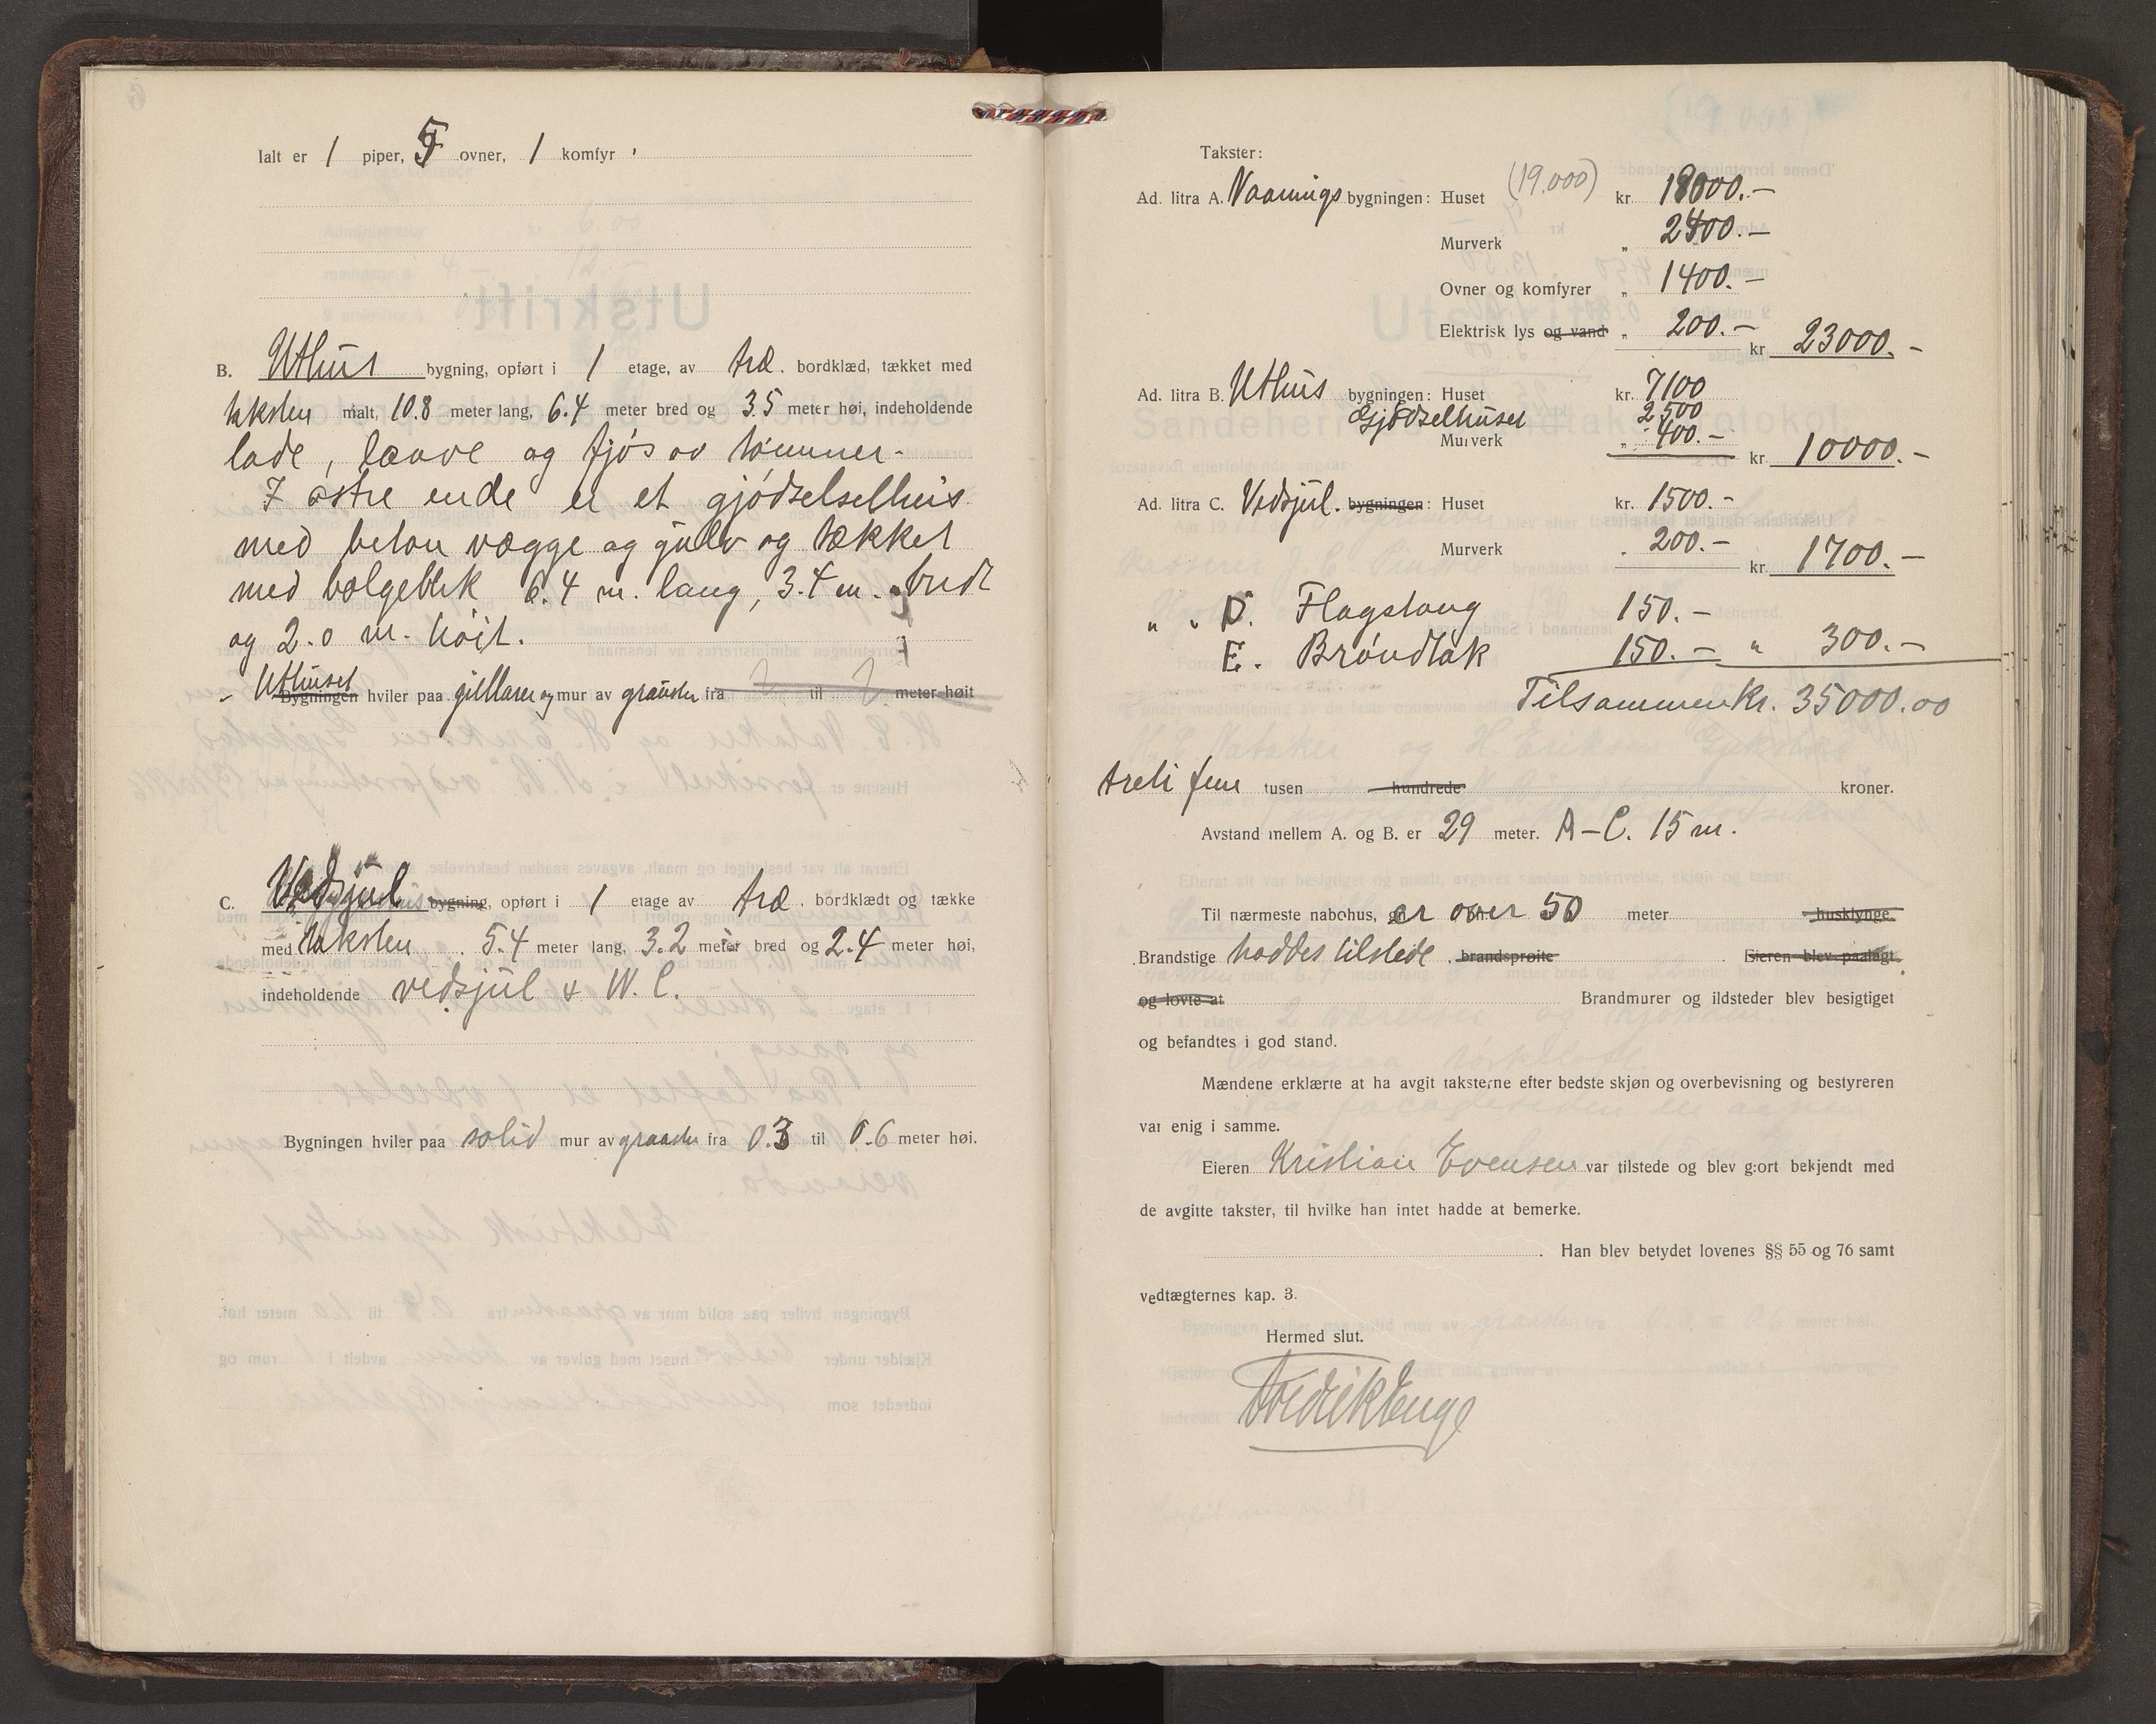 Ialt er 1 piper, 5 ovner, 1 komfyr.
B. Uthus bygning, opført i 1 etage, av træ. bordklæd, tækket med
taksten malt, 10.8 meter lang, 6.4 meter bred og 3.5 meter høi, indeholdende
lade, laave og fjøs av tømmer.
I østre ende er et gjødselselhus
med beton vægge og gulv og tækket
med bølgeblik 6.4 m. lang, 3.4 m. bredt
og 2.0 m. høit.
Uthuset
Bygningen hviler paa og mur av graasten fra til meter høit
C. Vedsjul bygning, opført i 1 etage av træ. bordklædt og tække
med taksten 5.4 meter lang, 3.2 meter bred og 2.4 meter høi,
indeholdende vedsjul & W. C.
Bygningen hviler paa solid mur av graasten fra 0.3 til 0.6 meter høi.
Takster:
Ad. litra A. Vaanings bygningen: Huset (19.000) kr. 18000.-
Murverk „ 2400.-
Ovner og komfyrer „ 1400.-
Elektrisk lys og vand „ 200.- kr. 23000.-
Ad. litra B. Uthus bygningen: Huset kr. 7100
Gjødselhuset 2500
Murverk „ 400.- kr. 10000.-
Ad. litra C. Vedsjul. bygningen: Huset kr. 1500.-
Murverk „ 200.- kr. 1700.-
„ „ D. Flagstang 150.-
E. Brøndlåk 150.- „ 300.-
Tilsammen Kr. 35000.00
treti fem tusen hundrede kroner.
Avstand mellem A. og B. er 29 meter. A-C. 15 m.
Til nærmeste nabohus, er over 50 meter husklynge
Brandstige haddes tilstede. brandsprøite. Eieren blev paalagt
og lovte at Brandmurer og ildsteder blev besigtiget
og befandtes i god stand.
Mændene erklærte at ha avgit taksterne efter bedste skjøn og overbevisning og bestyreren
var enig i samme.
Eieren Kristian Evensen var tilstede og blev gjort bekjendt med
de avgitte takster, til hvilke han intet hadde at bemerke.
. Han blev betydet lovenes §§ 55 og 76 samt
vedtægternes kap. 3.
Hermed slut.
Fredrik Enge